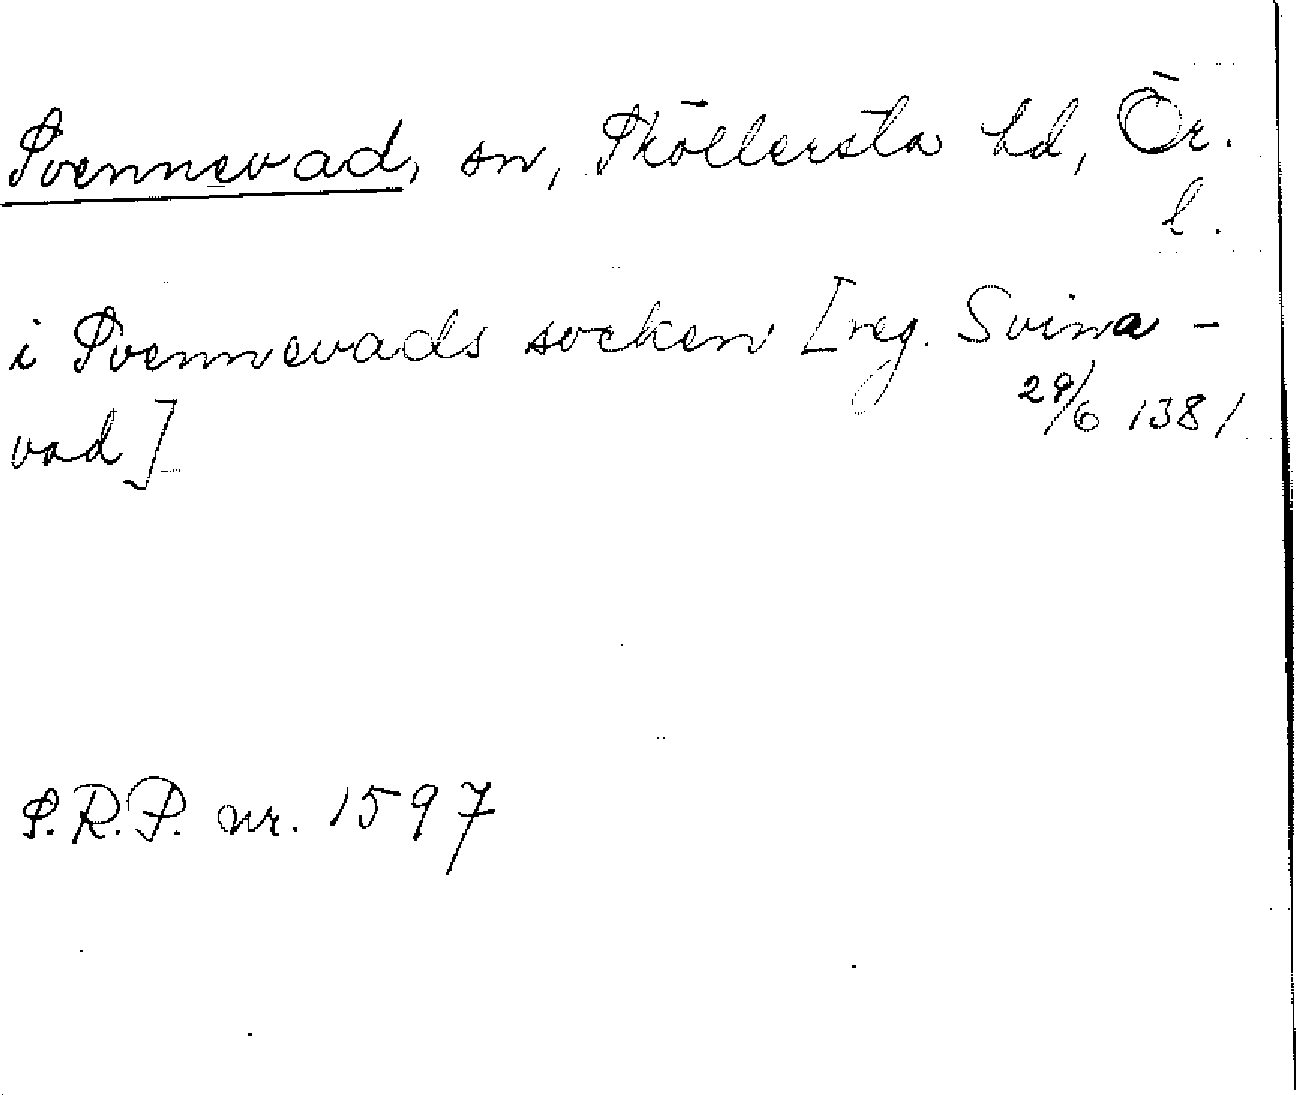 Svennevad, sn, Sköllersta hd, Ör.
l.
i Svennevads socken [reg. Svina-
vad] 29/6 1381
S.R.P. nr. 1597